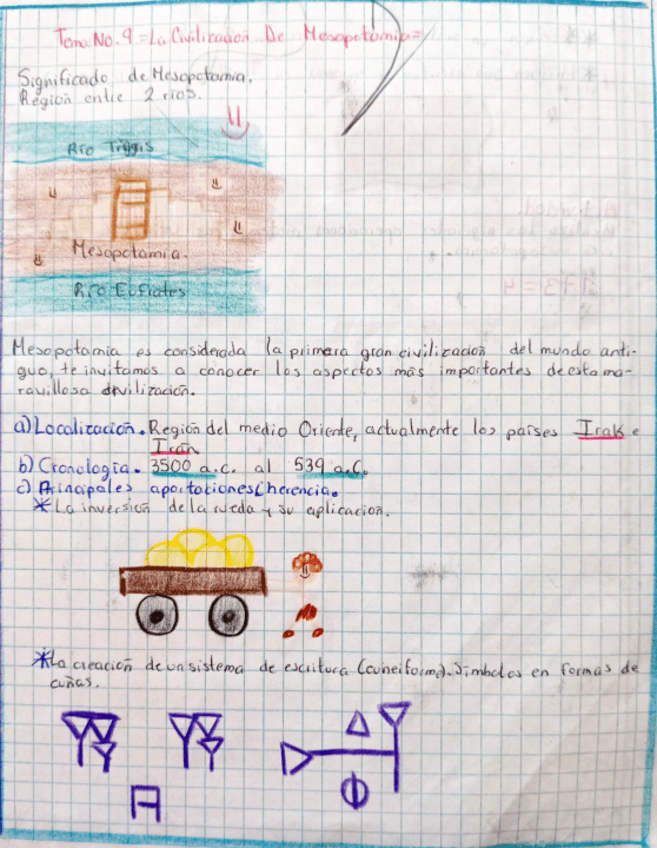 Tema No. 9 = La Civilizacion De Mesopotamia =
Significado de Mesopotamia.
Región entre 2 rios.
Río Tiggis
Mesopotamia.
Río Eufrates
Mesopotamia es considerada la primera gran civilización del mundo anti-
guo, te invitamos a conocer los aspectos más importantes de esta ma-
ravillosa civilización.
a) Localización. Región del medio Oriente, actualmente los países Irak e
Irán
b) Cronología. 3500 a.c. al 539 a.c.
c) Principales aportaciones (herencia.
* La inversión de la rueda y su aplicación.
* La creación de un sistema de escritura (cuneiforme). Simbolos en formas de
cuñas.